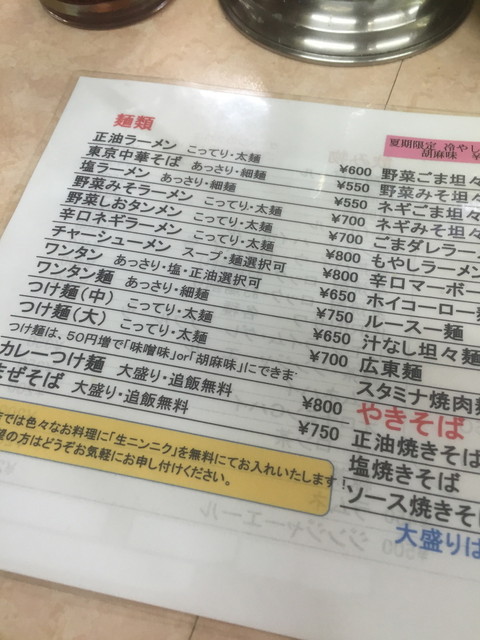 麺類
正油ラーメン こってり・太麺 ¥600
東京中華そば あっさり・細麺 ¥550
塩ラーメン あっさり・細麺 ¥550
野菜みそラーメン こってり・太麺 ¥700
野菜しおタンメン こってり・太麺 ¥700
辛口ネギラーメン こってり・太麺 ¥800
チャーシューメン スープ・麺選択可 ¥800
ワンタン あっさり・塩・正油選択可 ¥650
ワンタン麺 あっさり・細麺 ¥750
つけ麺(中) こってり・太麺 ¥650
つけ麺(大) こってり・太麺 ¥700
つけ麺は、50円増で「味噌味」or「胡麻味」にできま
カレーつけ麺 大盛り・追飯無料 ¥800
まぜそば 大盛り・追飯無料 ¥750
では色々なお料理に「生ニンニク」を無料にてお入れいたします!
の方はどうぞお気軽にお申し付けください。
夏期限定 冷やし
胡麻味
野菜ごま坦々
野菜みそ坦
ネギごま坦々
ネギみそ坦々
ごまダレラー
もやしラーメン
辛口マーボー
ホイコーロー
ルースー麺
汁なし坦々麺
広東麺
スタミナ焼肉麺
やきそば
正油焼きそば
塩焼きそば
ソース焼きそ
大盛りは
ジンジャーエール
¥500